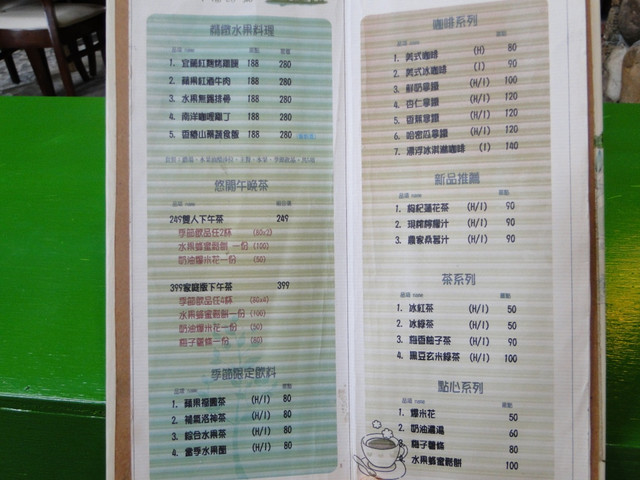 精緻水果料理
品項 name 單點 套餐
1. 宜蘭紅麴烤雞腿 188 280
2. 蘋果紅酒牛肉 188 280
3. 水果無錫排骨 188 280
4. 南洋咖哩雞丁 188 280
5. 香椿山藥蔬食飯 188 280
悠閒午晚茶
品項 name
249雙人下午茶 249
季節飲品任2杯 (80x2)
水果蜂蜜鬆餅 一份 (100)
奶油爆米花一份 (50)
399家庭號下午茶 399
季節飲品任4杯 (80x4)
水果蜂蜜鬆餅一份 (100)
奶油爆米花一份 (50)
梅子薯條一份 (80)
季節限定飲料
品項 name 單點
1. 蘋果桂圓茶 (H/I) 80
2. 補氣洛神茶 (H/I) 80
3. 綜合水果茶 (H/I) 80
4. 當季水果醋 (H/I) 80
咖啡系列
品項 name 單點
1. 美式咖啡 (H) 80
2. 美式冰咖啡 (I) 90
3. 鮮奶拿鐵 (H/I) 100
4. 杏仁拿鐵 (H/I) 120
5. 香蕉拿鐵 (H/I) 120
6. 哈密瓜拿鐵 (H/I) 120
7. 漂浮冰淇淋咖啡 (I) 140
新品推薦
品項 name 單點
1. 枸杞蓮花茶 (H/I) 90
2. 現榨檸檬汁 (H/I) 90
3. 農家桑葚汁 (H/I) 90
茶系列
品項 name 單點
1. 冰紅茶 (H/I) 50
2. 冰綠茶 (H/I) 50
3. 梅香柚子茶 (H/I) 90
4. 黑豆玄米綠茶 (H/I) 100
點心系列
品項 name 單點
1. 爆米花 50
2. 奶油濃湯 60
梅子薯條 80
4. 水果蜂蜜鬆餅 100